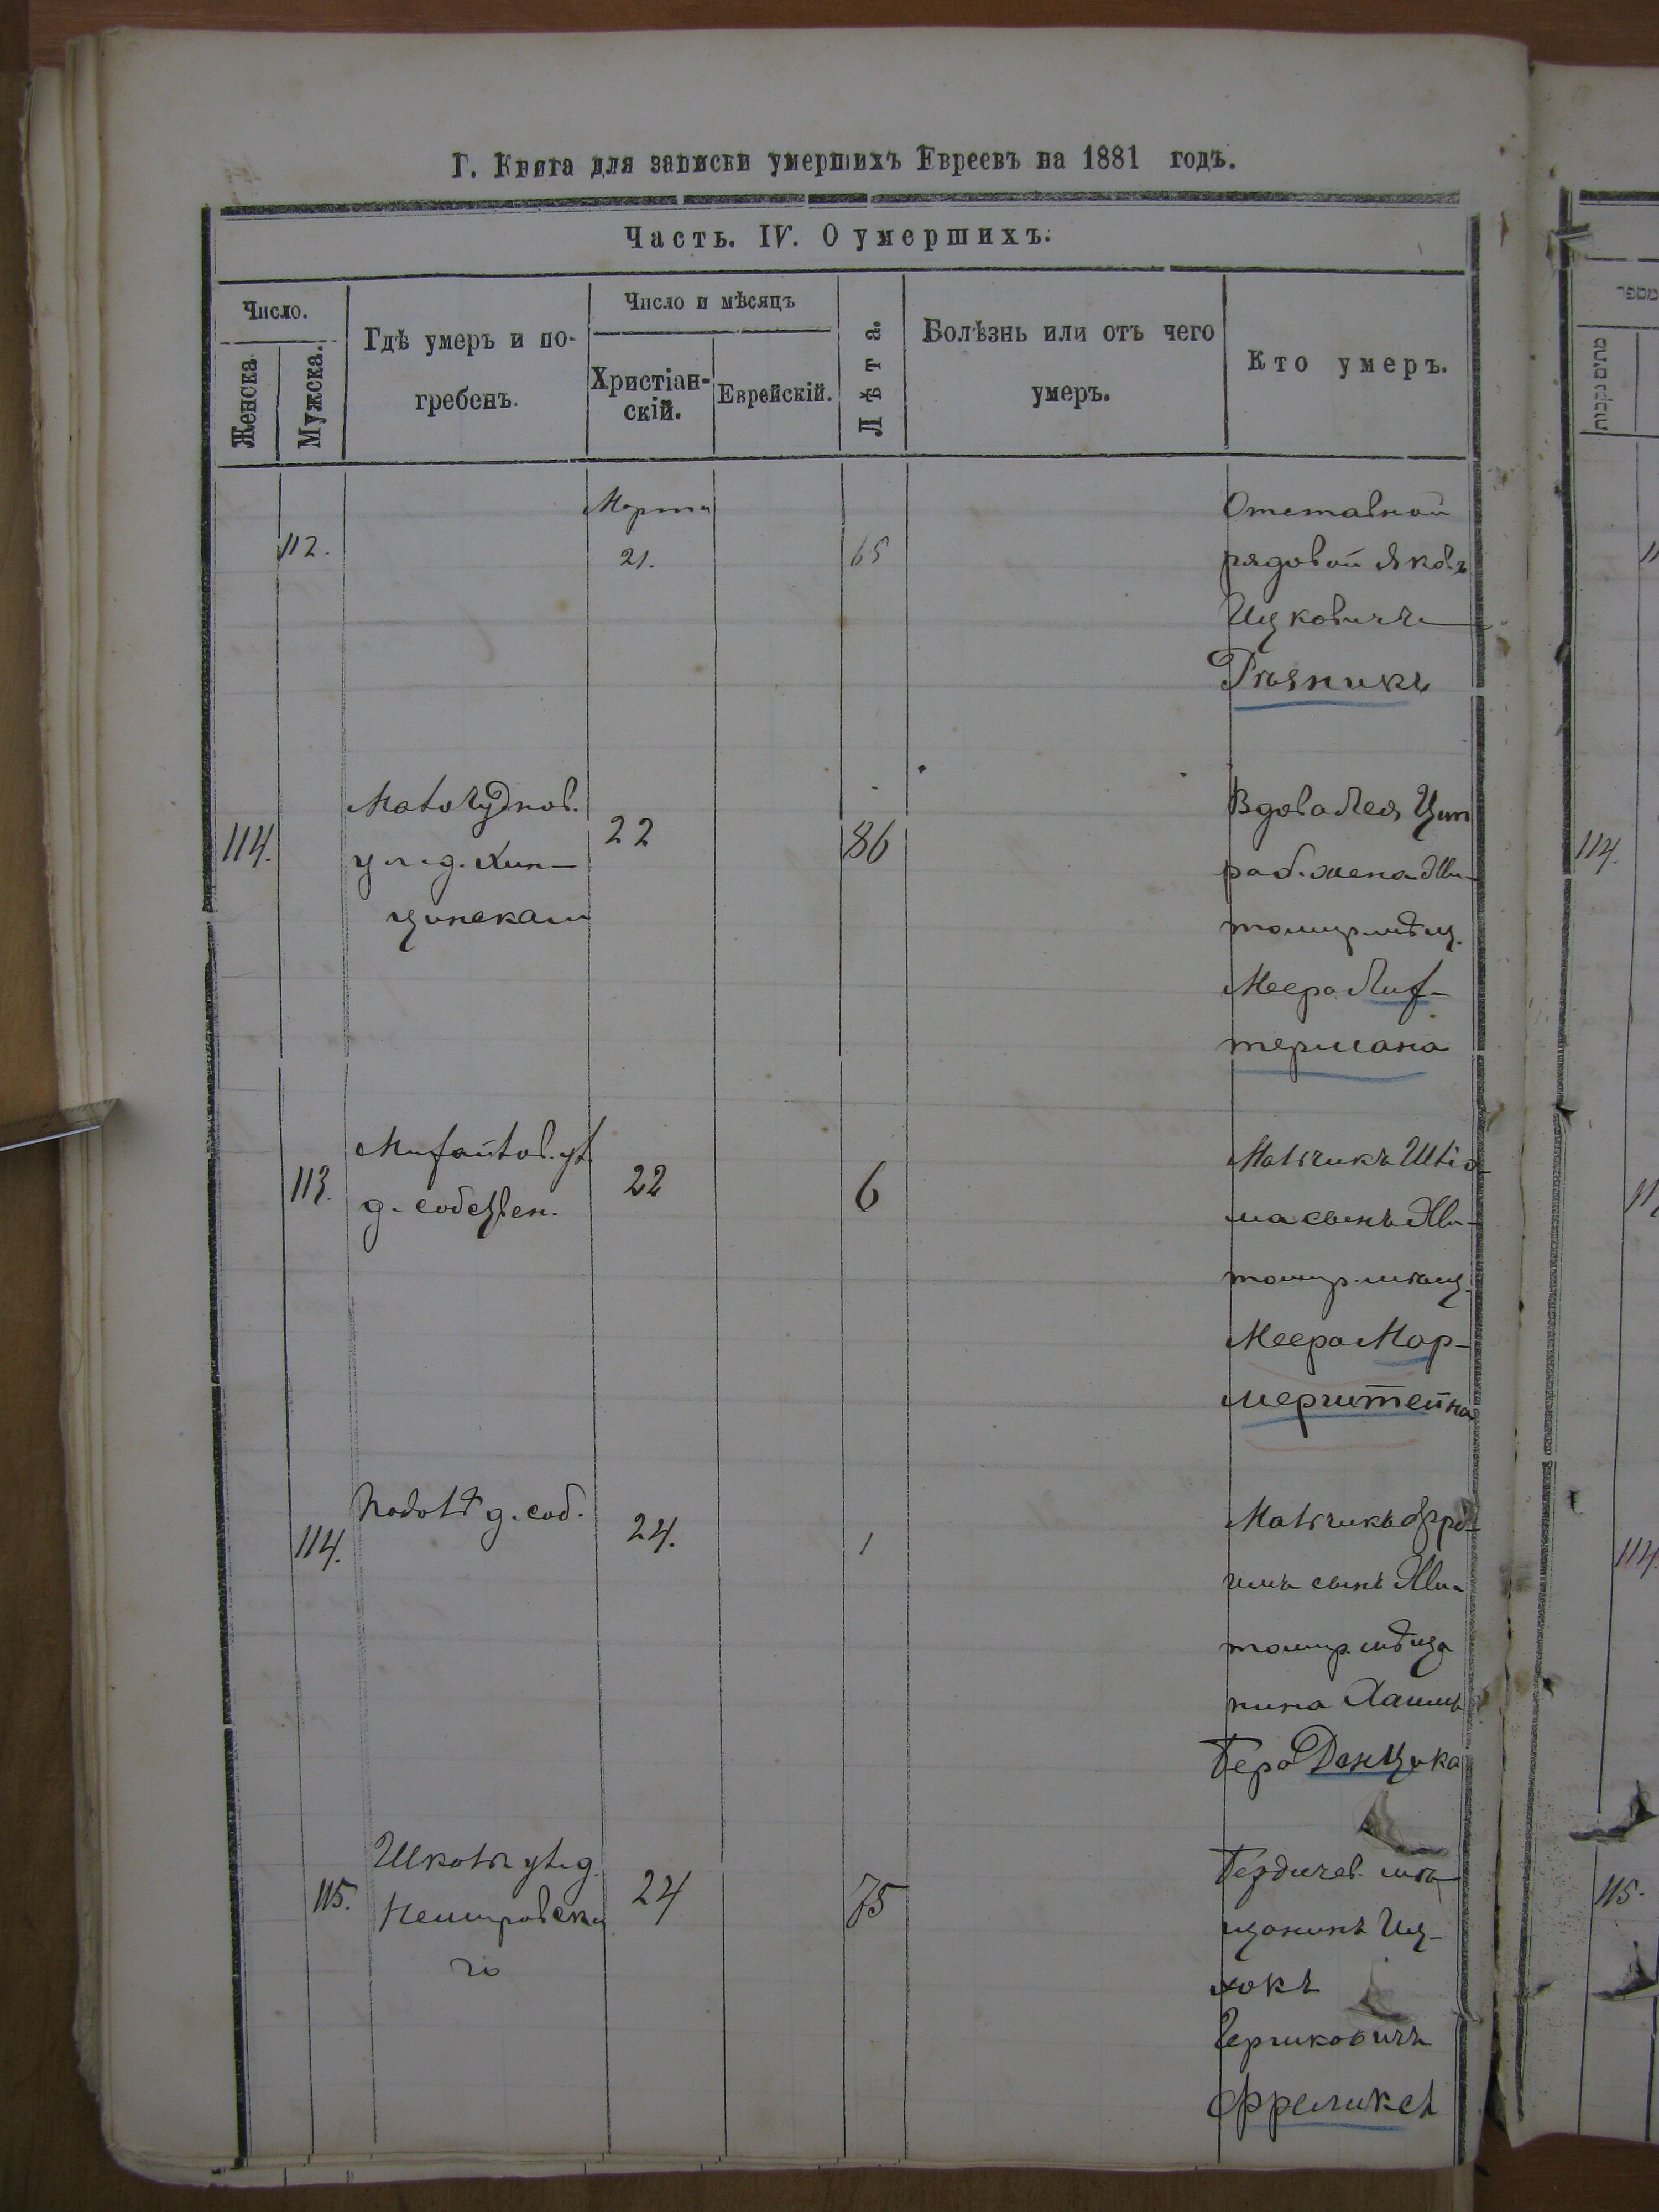 Г. Книга для записки умершихъ Евреевъ на 1881 годъ.
Часть. IV. О умершихъ.
Число.
Женска
Мужска.
Гдѣ умеръ и по-
гребенъ.
Число и мѣсяцъ
Христіан-
скій.
Еврейскій.
Лѣта.
Болѣзнь или отъ чего
умеръ.
Кто умеръ.
112.
Марта
21.
65
Отставной
рядовой Яковъ
Ицковичъ
Рѣзникъ
114.
Малочуднов.
ул. д.
22
86
Вдова Лея Цип
ра б. жена Жи-
томир. мѣщ.
Меера Лиф-
термана
113.
Михайлов. ул.
д. собствен.
22
6
Мальчикъ Шліо-
ма сынъ Жи-
томир. мѣщ.
Меера Мар-
мерштейна
114.
д. соб.
24.
1
Мальчикъ Фро-
имъ сынъ Жи-
томир. мѣща
нина Хаимъ
Бера Данцика
115.
Школьн. ул. д.
Немировска
го
24
75
Бердичев. мѣ-
щанинъ Иц-
хокъ
Гершковичъ
מספר
מתים נקבות
114.
114.
115.